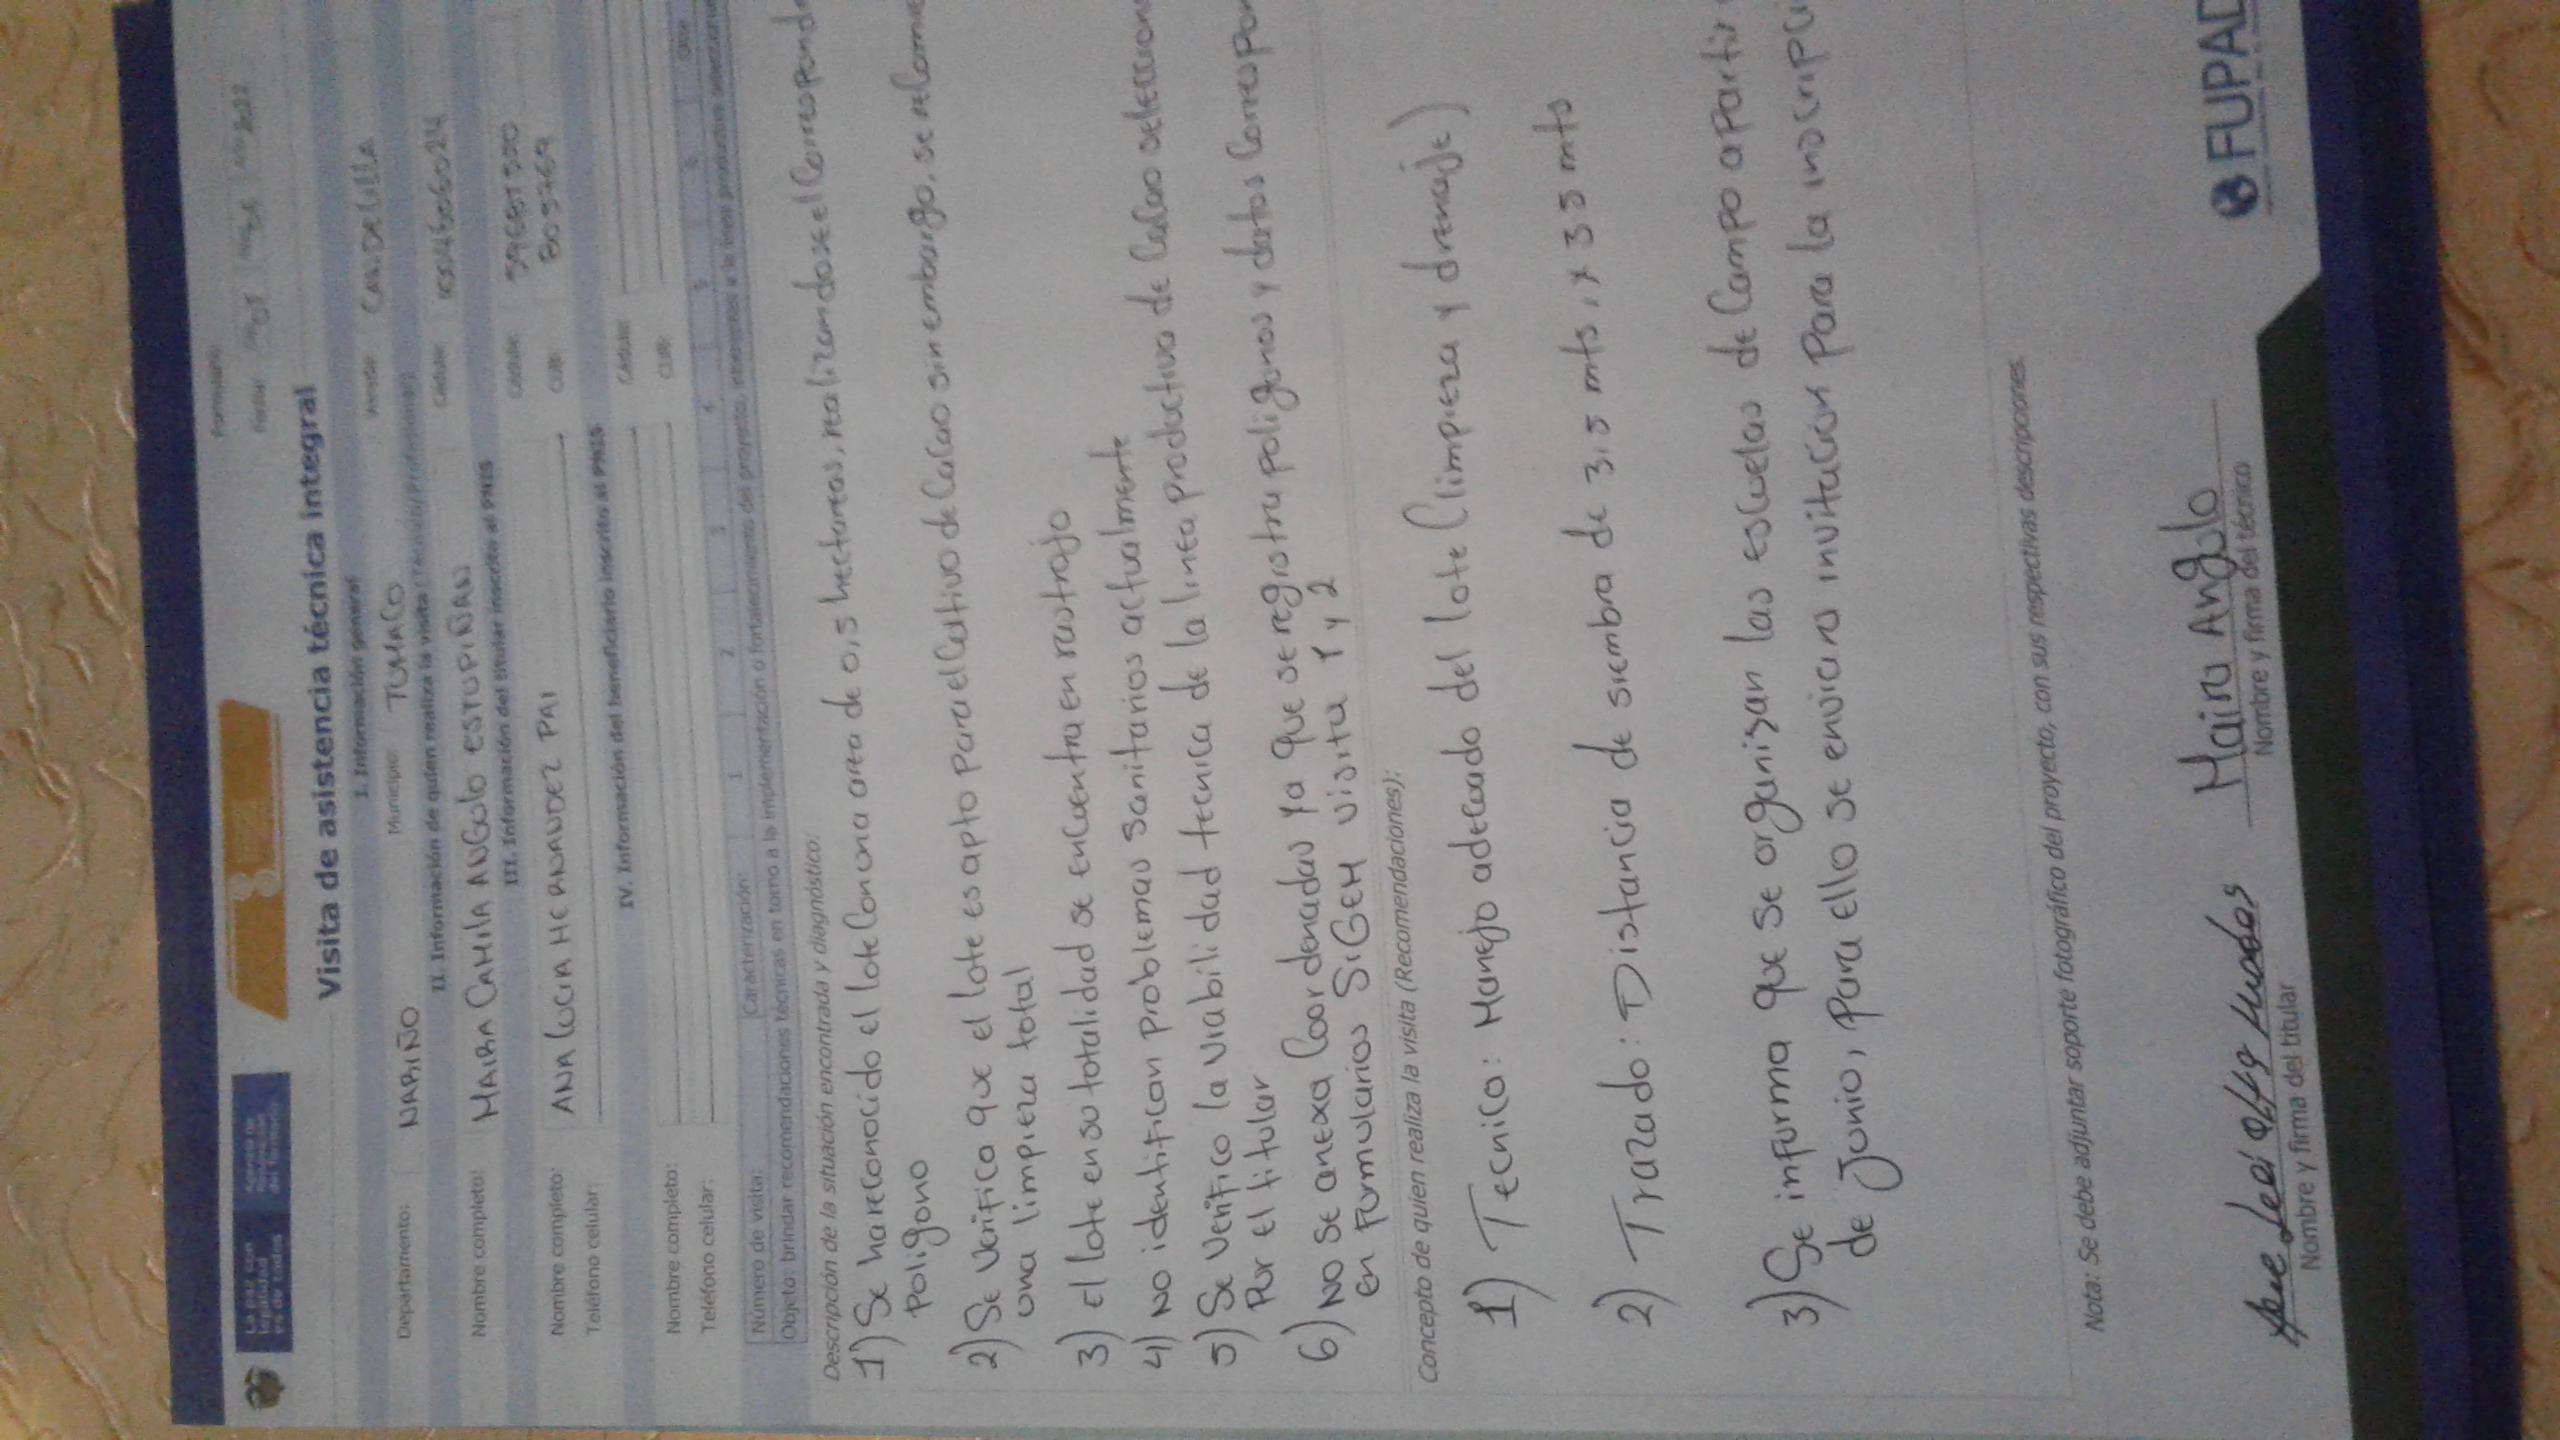 La paz con legalidad es de todos
Agencia de Renovación del Territorio
Formulario
Fecha:
Visita de asistencia técnica integral
I. Información general
Departamento: NARIÑO Municipio: TUMACO Vereda: CANDELILLA
II. Información de quien realiza la visita (Técnico/Profesional)
Nombre completo: MAIRA CAMILA ANGULO ESTUPIÑAN Cédula:
III. Información del titular inscrito al PNIS
Nombre completo: ANA LUCIA HERNANDEZ PAI Cédula:
Teléfono celular: CUB:
IV. Información del beneficiario inscrito al PNIS
Nombre completo: Cédula:
Teléfono celular: CUB:
Número de visita: Caracterización: 1 2 3 4 5 6 Otra
Objeto: brindar recomendaciones técnicas en torno a la implementación o fortalecimiento del proyecto, inherentes a la línea productiva
Descripción de la situación encontrada y diagnóstico:
1) Se ha reconocido el lote con una area de 0,5 hectareas, realizandose el Correspond
Poligono
2) Se Verifica que el lote es apto para el Cultivo de Cacao sin embargo, se
una limpieza total
3) el lote en su totalidad se encuentra en rastrojo
4) No identifican problemas sanitarios actualmente
5) Se Verifico la viabilidad tecnica de la linea Productiva de Cacao seleccion
Por el titular
6) No se anexa Coordenadas Ya que se registra poligonos y datos Correspon
en Formularios SIGEM visita 1 y 2
Concepto de quien realiza la visita (Recomendaciones):
1) Tecnico: Manejo adecuado del lote (limpieza y drenaje)
2) Trazado: Distancia de siembra de 3,5 mts, x 3,5 mts
3) Se informa que se organizan las escuelas de Campo apartir
de Junio, para ello se enviara invitación Para la inscripci
Nota: Se debe adjuntar soporte fotográfico del proyecto, con sus respectivas descripciones.
Maira Angulo
Nombre y firma del titular Nombre y firma del técnico
FUPAD